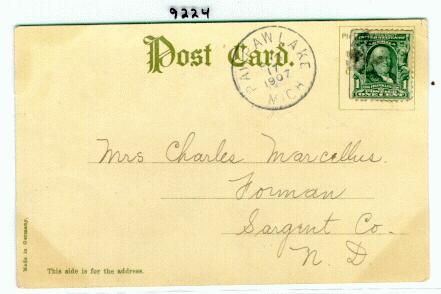 9224
Post Card.
PAW PAW LAKE
17
1907
MICH
Mrs Charles Marcellus.
Forman
Sargent Co.
N. D.
Made in Germany.
This side is for the address.